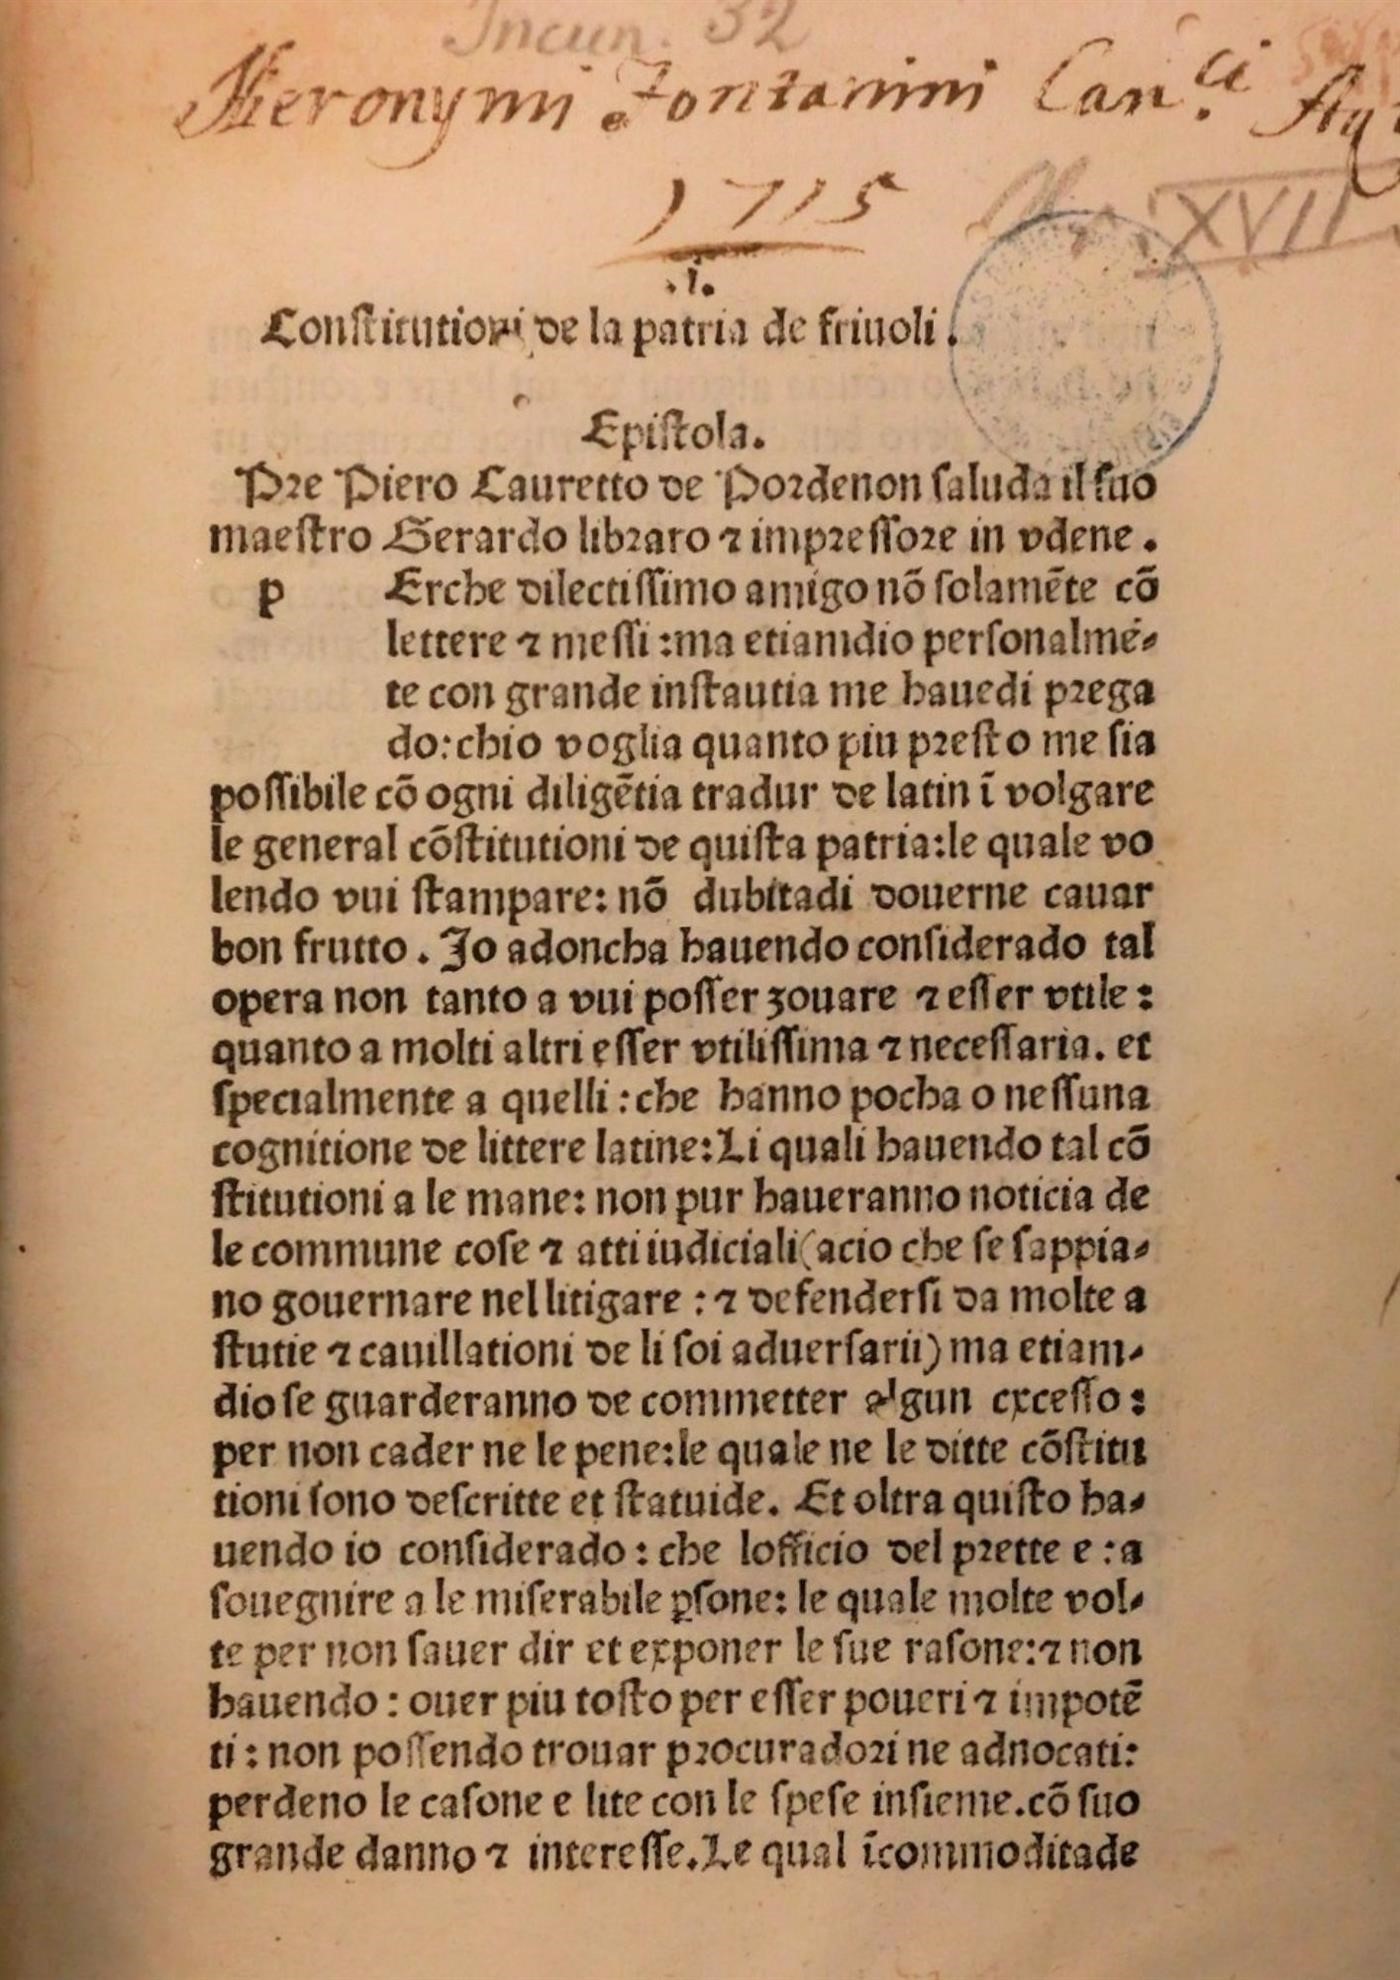 Incun. 32
Hieronymi Fontanini Can.ci
1715
XVII
.I.
Constitutioni de la patria de friuoli.
Epistola.
Pre Piero Capretto de Pordenon saluda il suo
maestro Gerardo libraro ⁊ impressore in vdene.
p Erche dilectissimo amigo nõ solamẽte cõ
lettere ⁊ messi:ma etiamdio personalmẽ-
te con grande instautia me hauedi prega
do:chio voglia quanto piu presto me sia
possibile cõ ogni diligẽtia tradur de latin ĩ volgare
le general cõstitutioni de quista patria:le quale vo
lendo vui stampare: nõ dubitadi douerne cauar
bon frutto. Io adoncha hauendo considerado tal
opera non tanto a vui posser zouare ⁊ esser vtile:
quanto a molti altri esser vtilissima ⁊ necessaria. et
specialmente a quelli:che hanno pocha o nessuna
cognitione de littere latine:Li quali hauendo tal cõ
stitutioni a le mane: non pur haueranno noticia de
le commune cose ⁊ atti iudiciali(acio che se sappia-
no gouernare nel litigare:⁊ defendersi da molte a
stutie ⁊ cauillationi de li soi aduersarii) ma etiam-
dio se guarderanno de commetter algun excesso:
per non cader ne le pene:le quale ne le ditte cõstitu
tioni sono descritte et statuide. Et oltra quisto ha-
uendo io considerado: che lofficio del prette e:a
souegnire a le miserabile ꝑsone: le quale molte vol-
te per non sauer dir et exponer le sue rasone:⁊ non
hauendo: ouer piu tosto per esser poueri ⁊ impotẽ
ti: non possendo trouar procuradori ne adnocati:
perdeno le casone e lite con le spese insieme.cõ suo
grande danno ⁊ interesse.Le qual ĩcommoditade